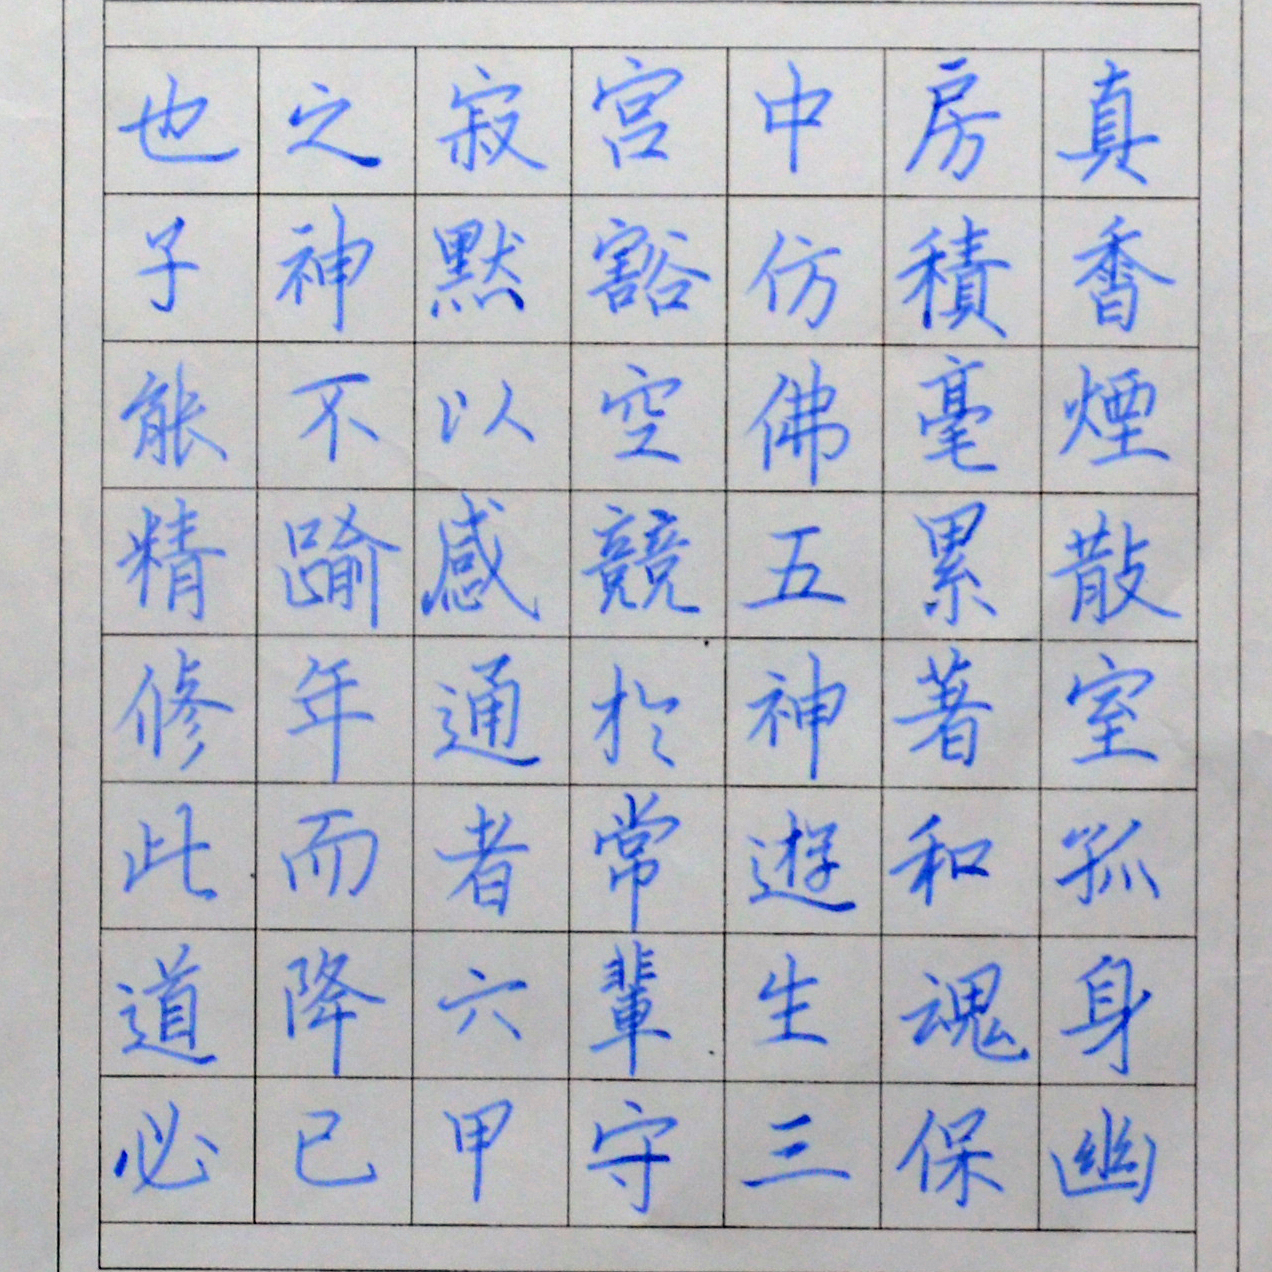 真香煙散室孤身幽
房積毫累著和魂保
中仿佛五神遊生三
宫豁空競於常輩守
寂默以感通者六甲
之神不踰年而降已
也子能精修此道必